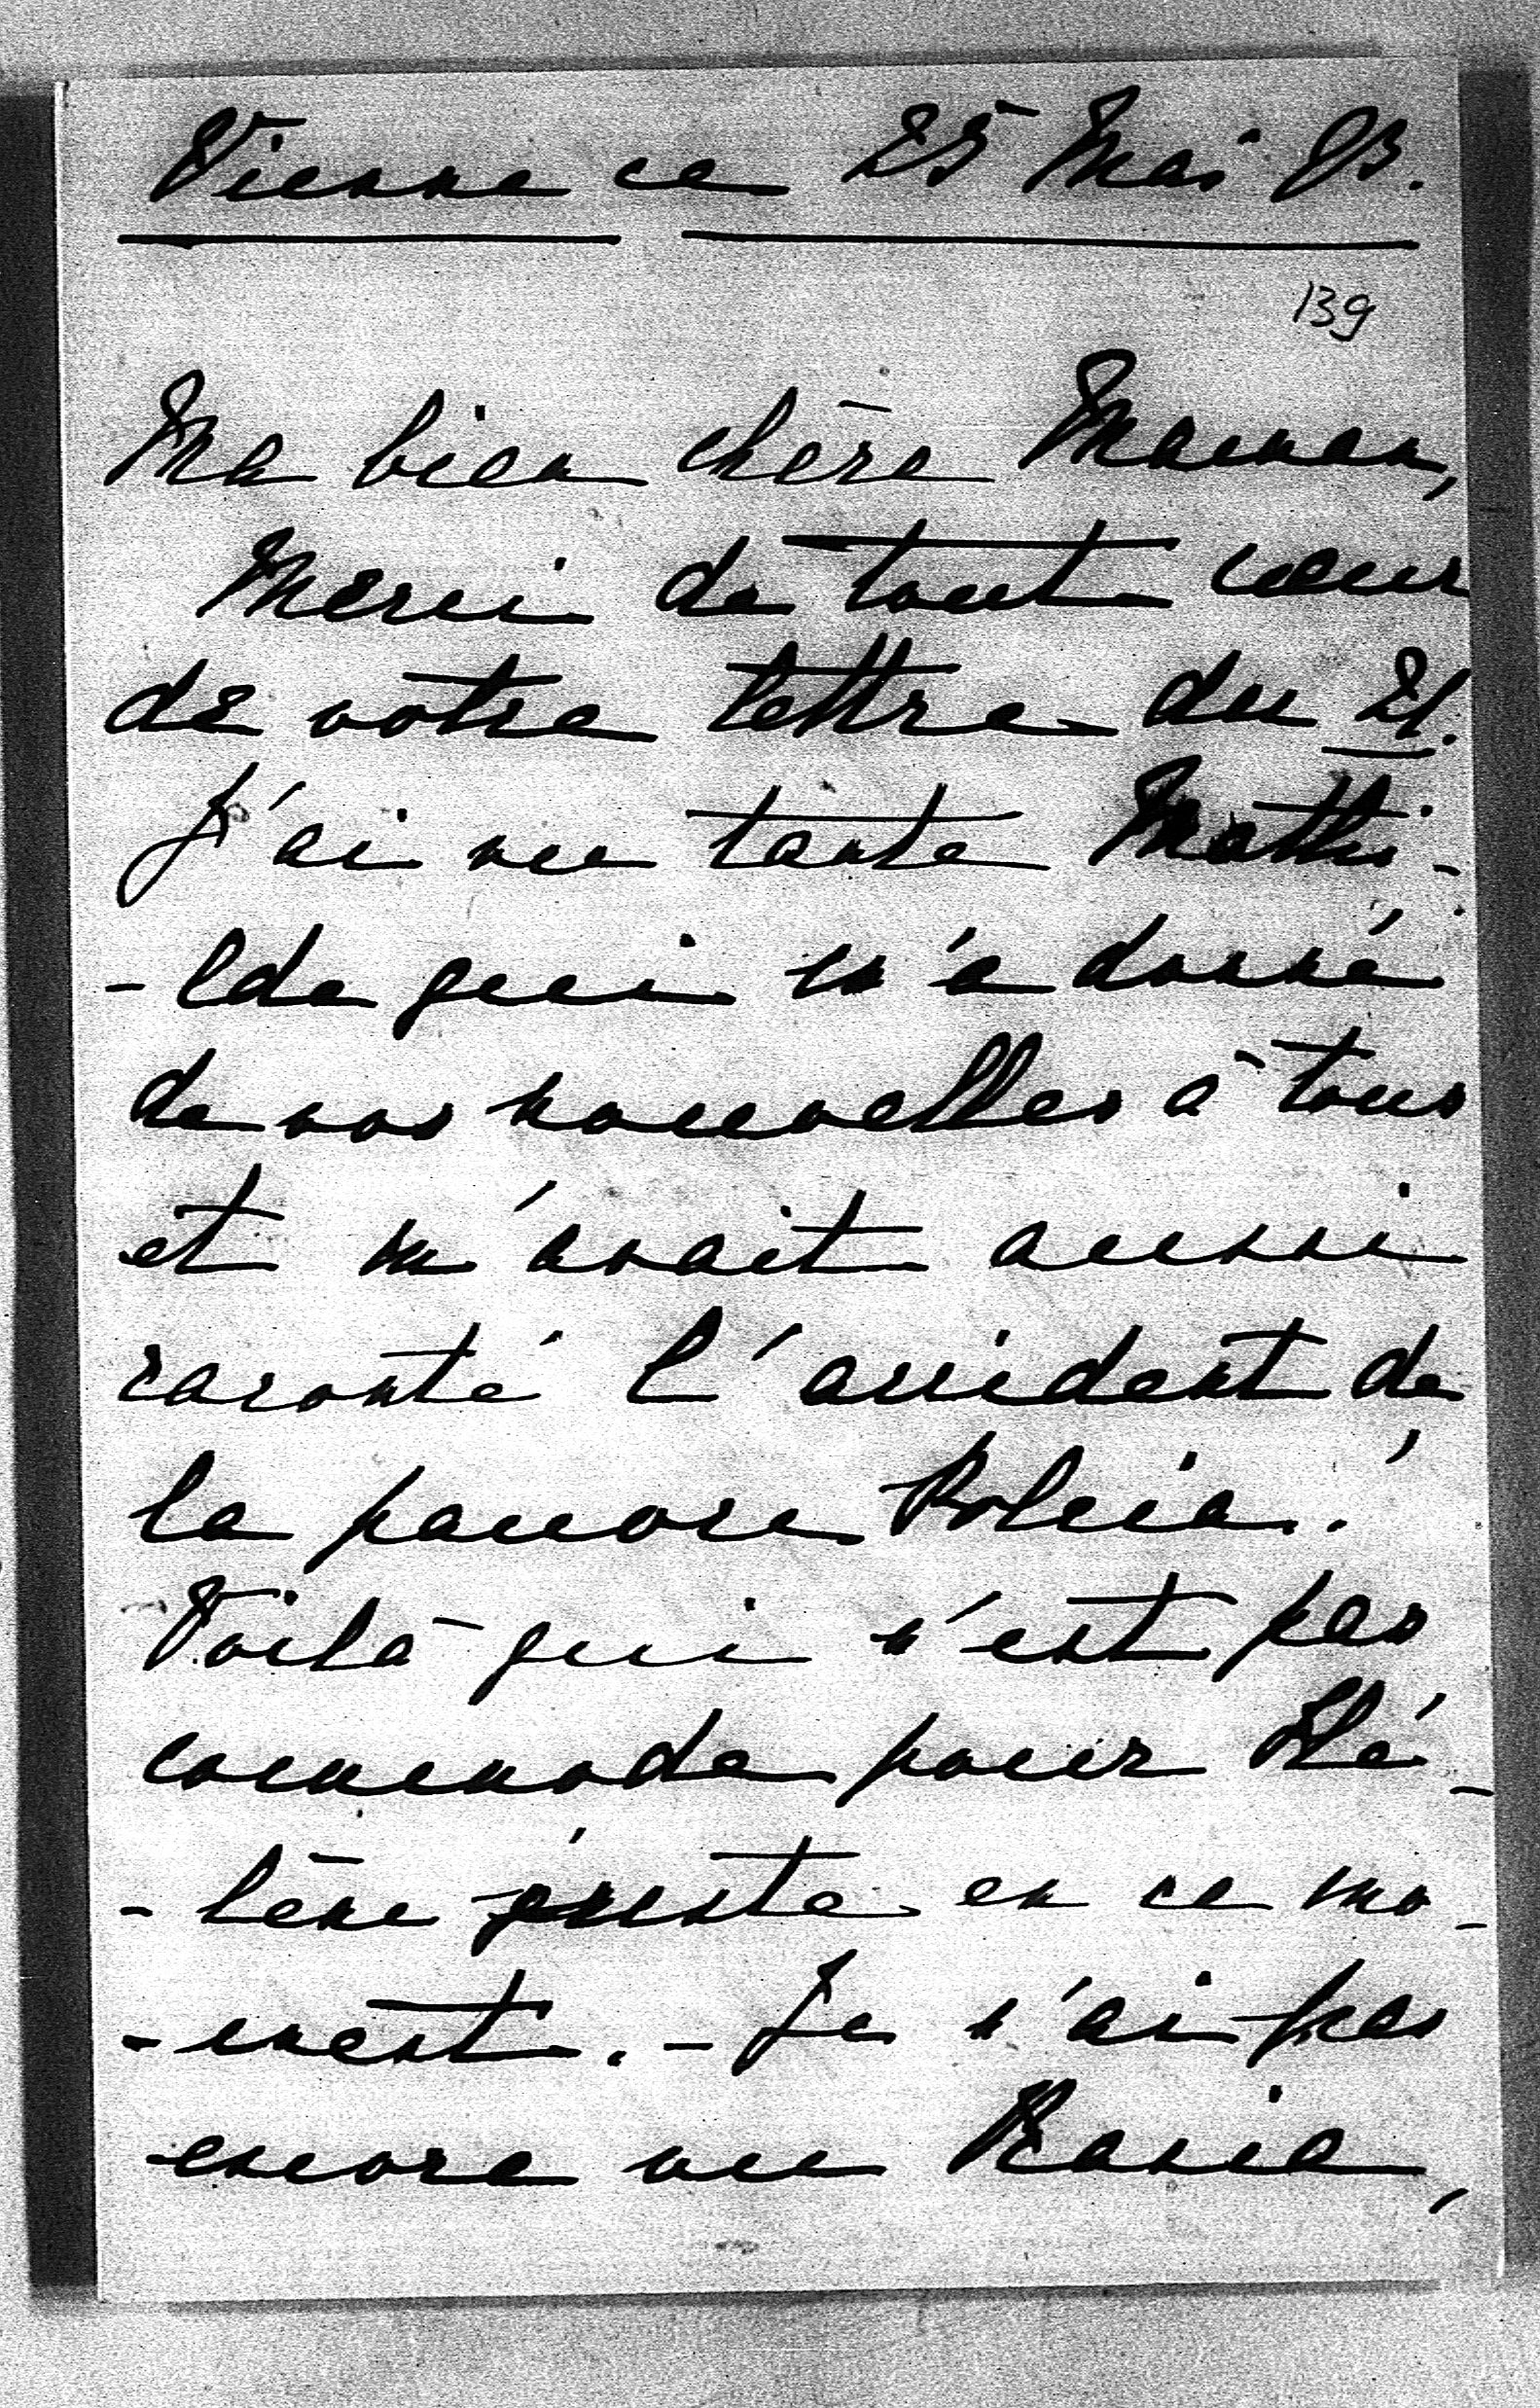 Vienne ce 25 Mai 93.
139
Ma bien chère Maman,
Merci de tout cœur
de votre lettre du 21.
J'ai vu tante Mathi-
-lde qui m'a donné
de vos nouvelles à tous
et m'avait aussi
raconté l'accident de
la pauvre
Voilà qui n'est pas
commode pour Hé-
-lène juste en ce mo-
-ment. - Je n'ai pas
encore vu Rosia,